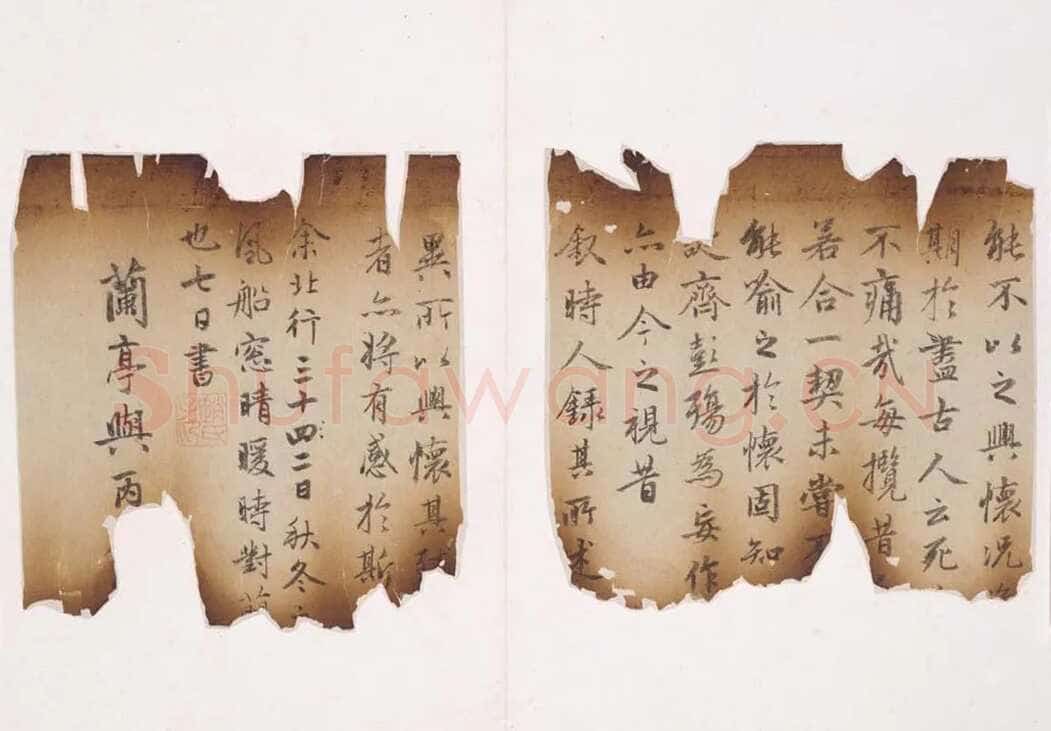 能不以之興懷況
期於盡古人云死
不痛哉每攬昔
若合一契未嘗不
能喻之於懷固知
齊彭殤為妄作
亦由今之視昔
叙時人錄其所述
異所以興懷其
者亦將有感於斯
余北行三十四二日秋冬
風船窓晴暖時對
也七日書
蘭亭與丙
Shufawang.cn